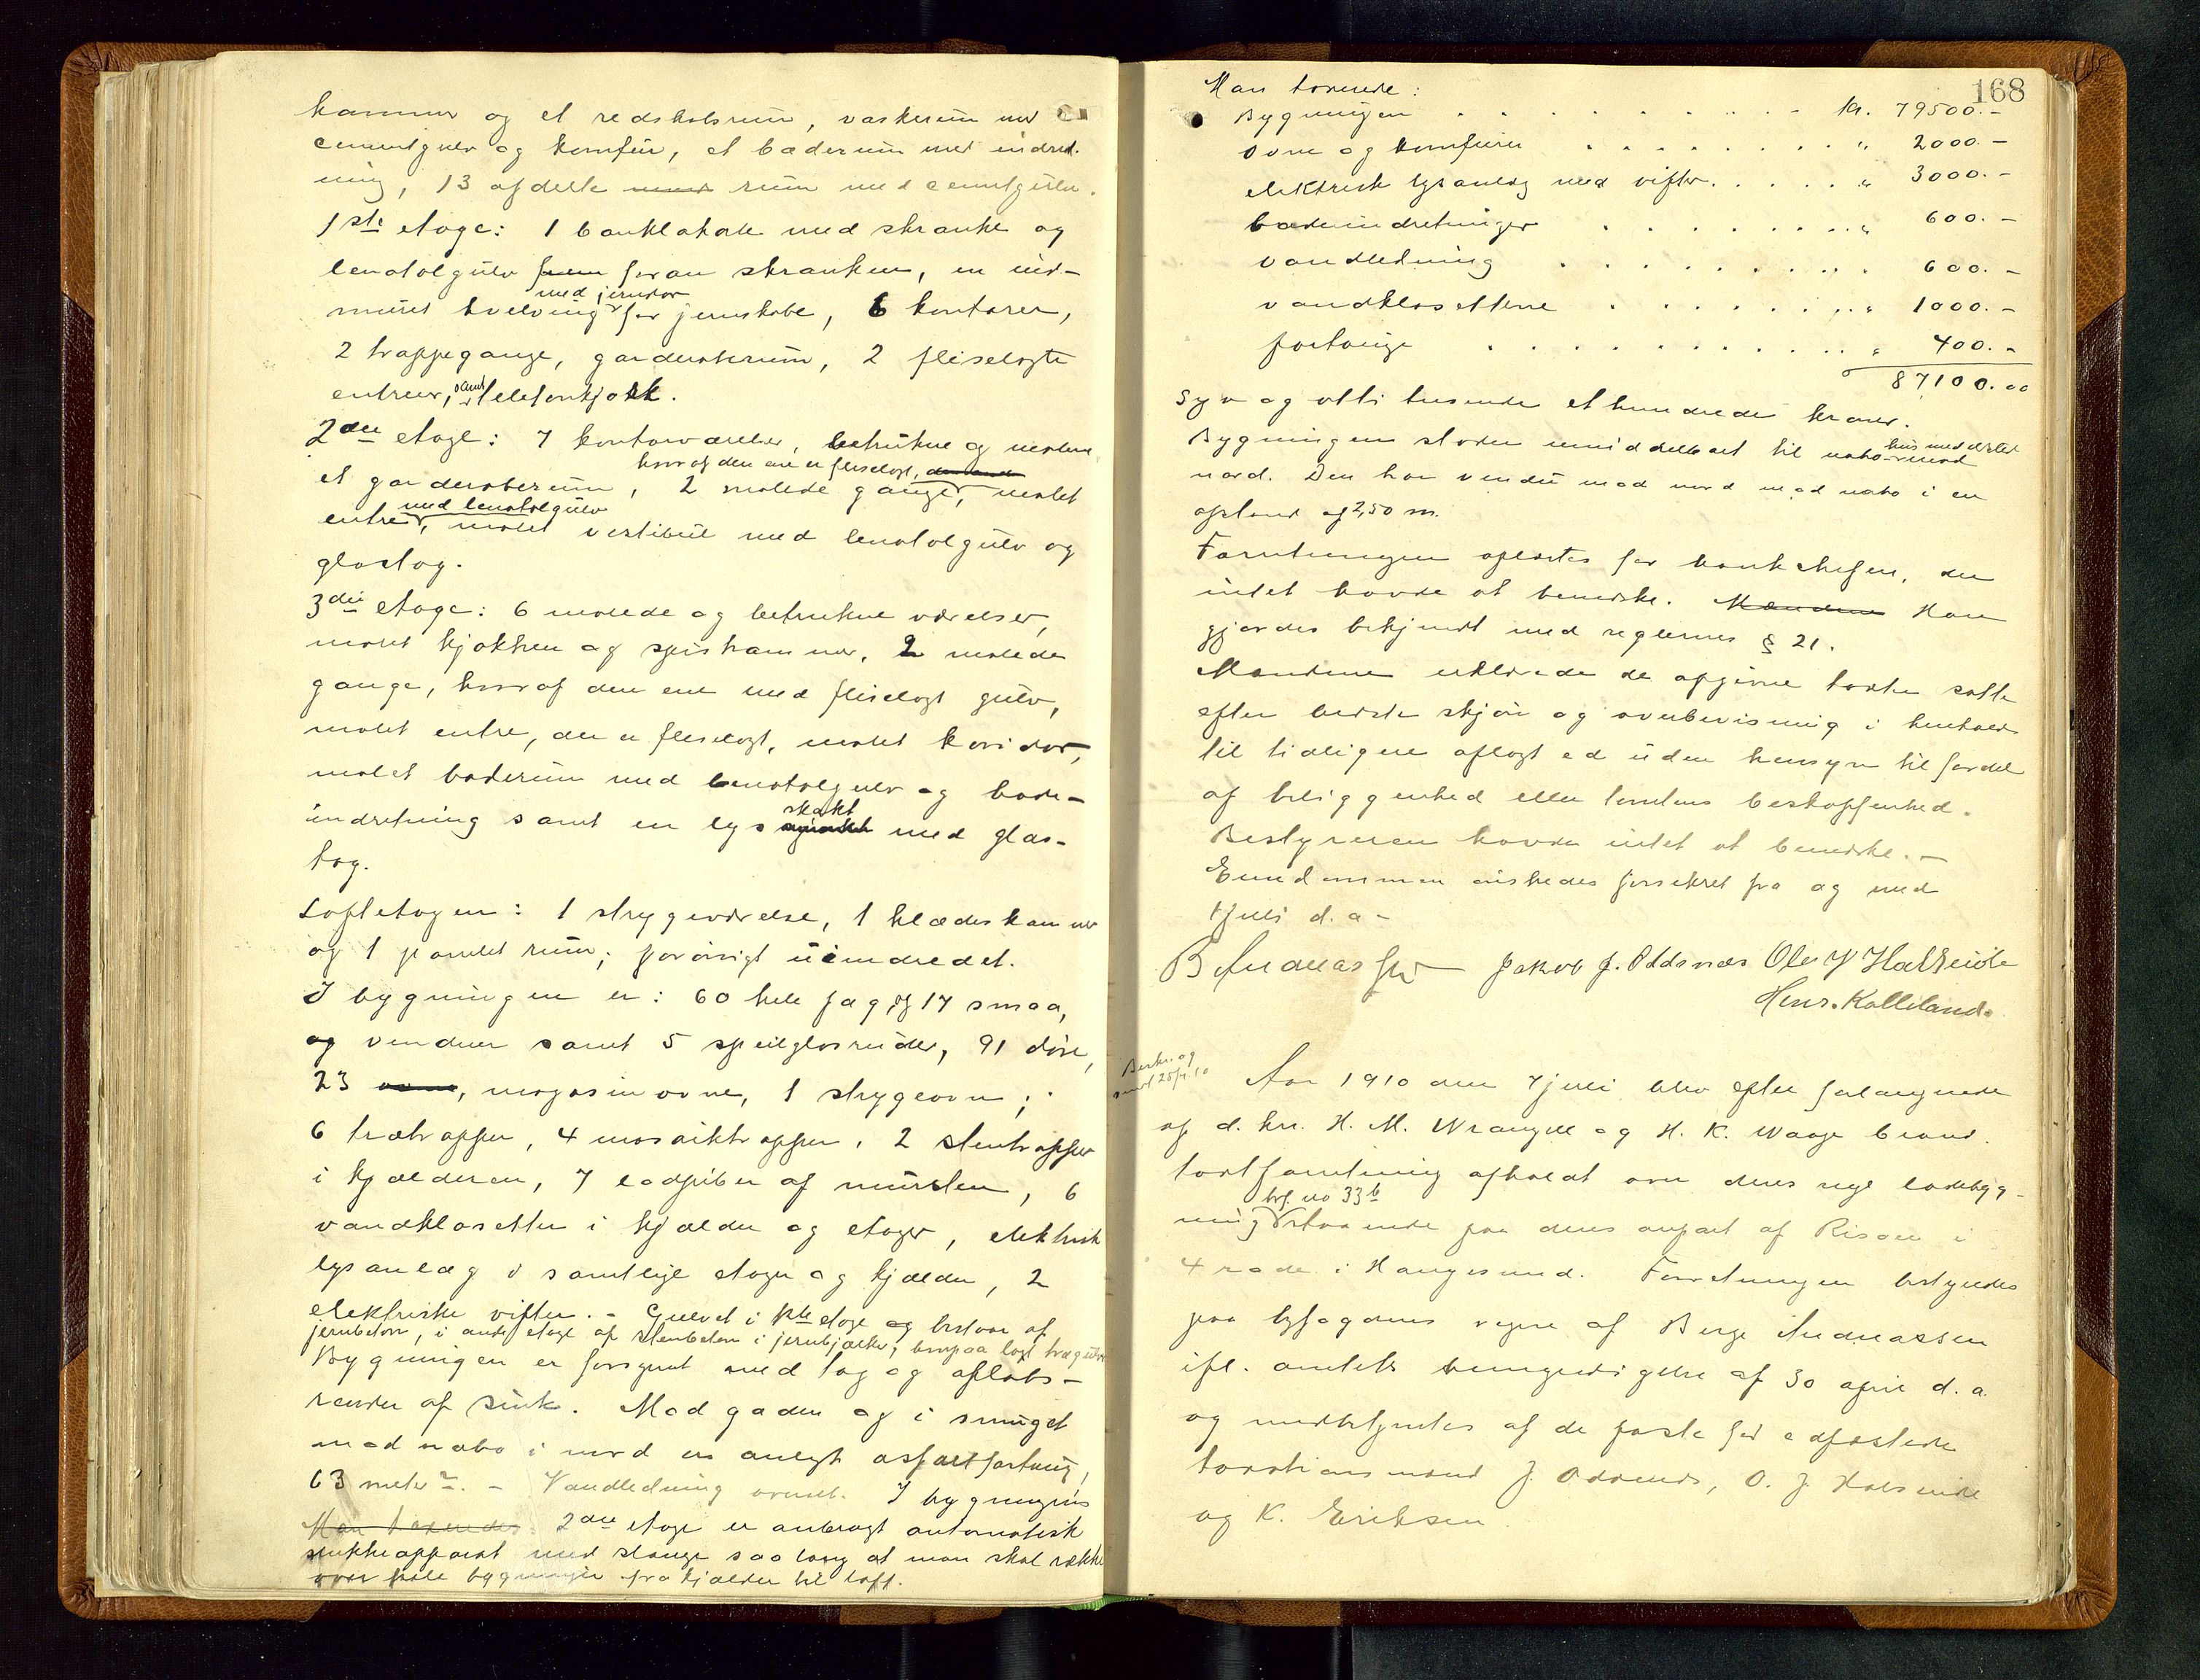 kammer og et redskabsrum, vaskerum med
cementgulv og komfür, et baderum med indret-
ning, 13 afdelte rum med cemtgülv.
1ste etage: 1 banklokale med skranke og
lenololgülv foran skranken, en ind-
müret hvelving med jerndør for jernskabe, 6 kontorer,
2 trappegange, garderoberüm, 2 fliselagte
entreer, samt telefonkjosk.
2den etage: 7 kontorværelser, betrukne og malede
et garderoberüm, 2 malede gange, hvoraf den ene er fliselagt, malet
entre med lenololgülv, malet vestibül med lenololgülv og
glastag.
3die etage: 6 malede og betrukne værelser,
malet kjøkken og spiskammer, 2 malede
gange, hvoraf den ene med fliselagt gülv,
malet entre, der er fliselagt, malet koridor,
malet baderüm med lenololgulv og bade-
indretning samt en lysskakt med glas-
tag.
Loftetagen: 1 strygeværelse, 1 klædeskammer
og 1 panelet rüm; forøvrigt üindredet.
I bygningen er: 60 hele fag og 17 smaa,
vinduer samt 5 speilglasrüder, 91 døre,
23 magasinovne, 1 strygeovn;
6 trætrapper, 4 mosaiktrapper, 2 stentrapper
i kjælderen, 7 lodpiber af mürsten, 6
vandklosetter i kjælder og etager, elektrisk
lysanlæg i samtlige etager og kjælder, 2
elektriske vifter. - Gulvet i 1ste etage bestaar af
jernbeton, i anden etage af stenbeton i jernbjælker, hvorpaa lagt trægulv
Bygningen er forsynet med tag og afløbs-
render af sink. Mod gaden og i smüget
mod nabo i nord er anlagt asfaltfortaug,
63 meter². - Vandledning ovenst. I bygningens
Man taxerede: 2den etage er anbragt automatisk
slukkeapparat med slange saa lang at man skal række
over hele bygningen fra kjælder til loft.
168
Man taxerede:
Bygningen . . . . . . . . kr. 79500.-
ovne og komfürer . . . . . . . " 2000.-
elektrisk lysanlæg med vifter. . . . . " 3000.-
badeindretninger . . . . . . . " 600.-
vandledning . . . . . . . . 600.-
vandklosetterne . . . . . . . " 1000.-
fortauge . . . . . . . . . " 400.-
87100.00
Syv og otti tusende et hundrede kroner.
Bygningen støder umiddelbart til nabo-
nord. Den har vinduer mod nord mod nabo i en
afstand af 2,50 m.
Forretningen oplæstes for bankchefen, der
intet havde at bemerke. Mændene Han
gjordes bekjendt med reglernes § 21.
Mændene erklærede de afgivne taxter satte
efter bedste skjøn og overbevisning i henhold
til tidligere aflagt ed uden hensyn til fordel
af beliggenhed eller tomtens beskaffenhed.
Bestyreren havde intet at bemerke. -
Eiendommen ønskedes forsikret fra og med
1 juli d.a -
B Andreassen Jakob J. Oddsnæs Ole J Halseide
Henr. Kalleland.
Beskr. og
send 25/7 10
Aar 1910 den 7 juli blev efter forlangende
af d.hrr. H. M. Wrangell og H. K. Waage brand-
taxtforretning afholdt over deres nye ladebyg-
ning brf no 33b staaende paa deres anpart af Risøen i
4 rode i Haugesund. Forretningen bestyredes
paa byfogdens vegne af Berge Andreassen
ifl. amtets bemyndigelse af 30 april d.a.
og medbetjentes af de faste før edfæstede
taxtionsmænd J. Oddsnæs, O. J. Halseide
og K. Eriksen